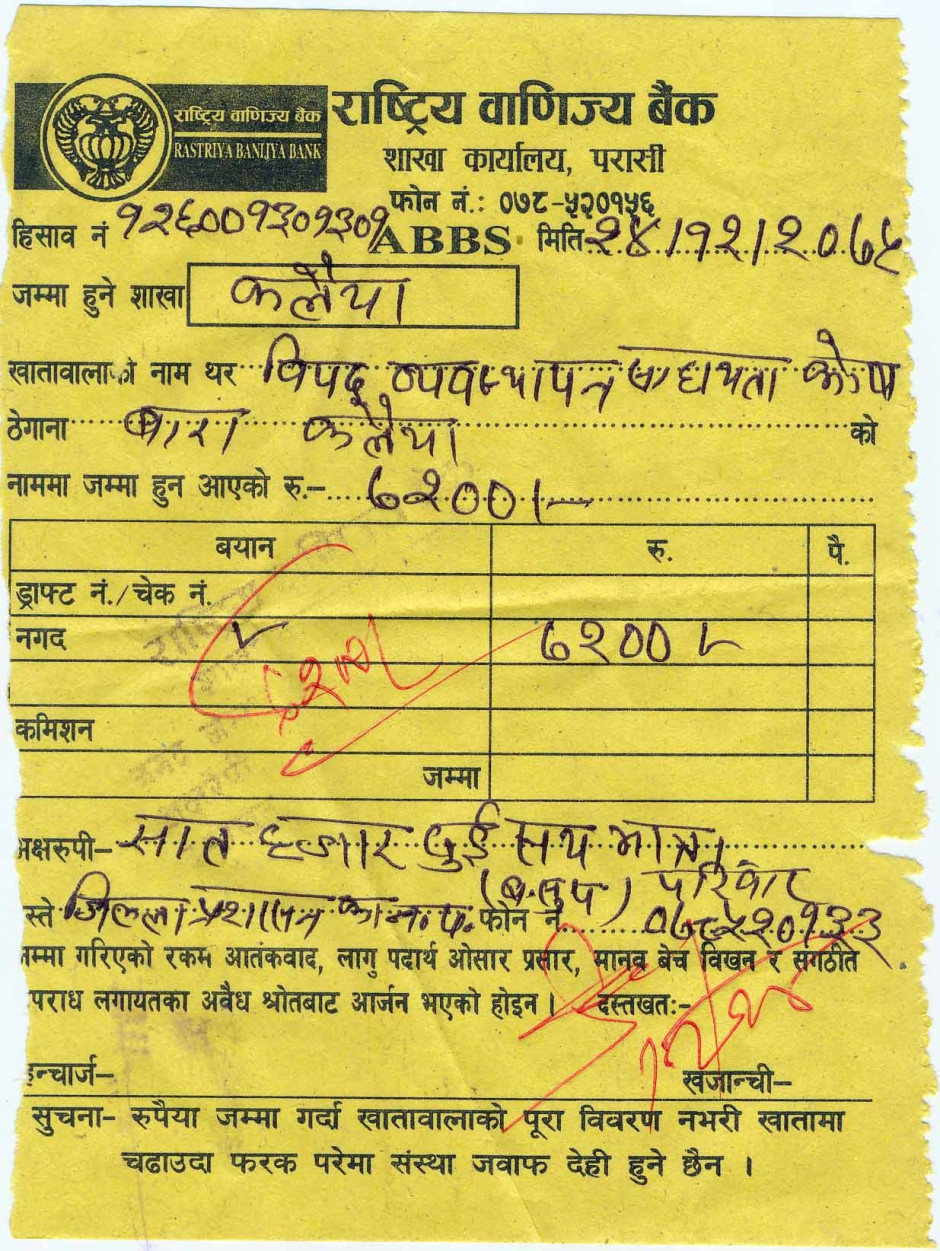 राष्ट्रिय वाणिज्य बैंक
RASTRIYA BANIJYA BANK
राष्ट्रिय वाणिज्य बैंक
शाखा कार्यालय, परासी
फोन नं.: ०७८-५२०१५६
हिसाव नं १२६००१३०१३०१ ABBS मिति २४।१२।२०७५
जम्मा हुने शाखा कलैया
खातावालाको नाम थर विपद् व्यवस्थापन सहायता कोष
ठेगाना बारा कलैया को
नाममा जम्मा हुन आएको रु.– ७२००।–
बयान रु. पै.
ड्राफ्ट नं./चेक नं.
नगद ७२००
कमिशन
जम्मा
अक्षरुपी– सात हजार दुई सय मात्र।
(ब.सु.प) परिवार
स्ते जिल्ला प्रशासन का.न.प. फोन नं ०७८५२०१३३
म्मा गरिएको रकम आतंकवाद, लागु पदार्थ ओसार प्रसार, मानव बेच विखन र संगठीत
पराध लगायतका अवैध श्रोतबाट आर्जन भएको होइन । दस्तखत:-
इन्चार्ज– खजान्ची–
सुचना- रुपैया जम्मा गर्दा खातावालाको पूरा विवरण नभरी खातामा
चढाउदा फरक परेमा संस्था जवाफ देही हुने छैन ।